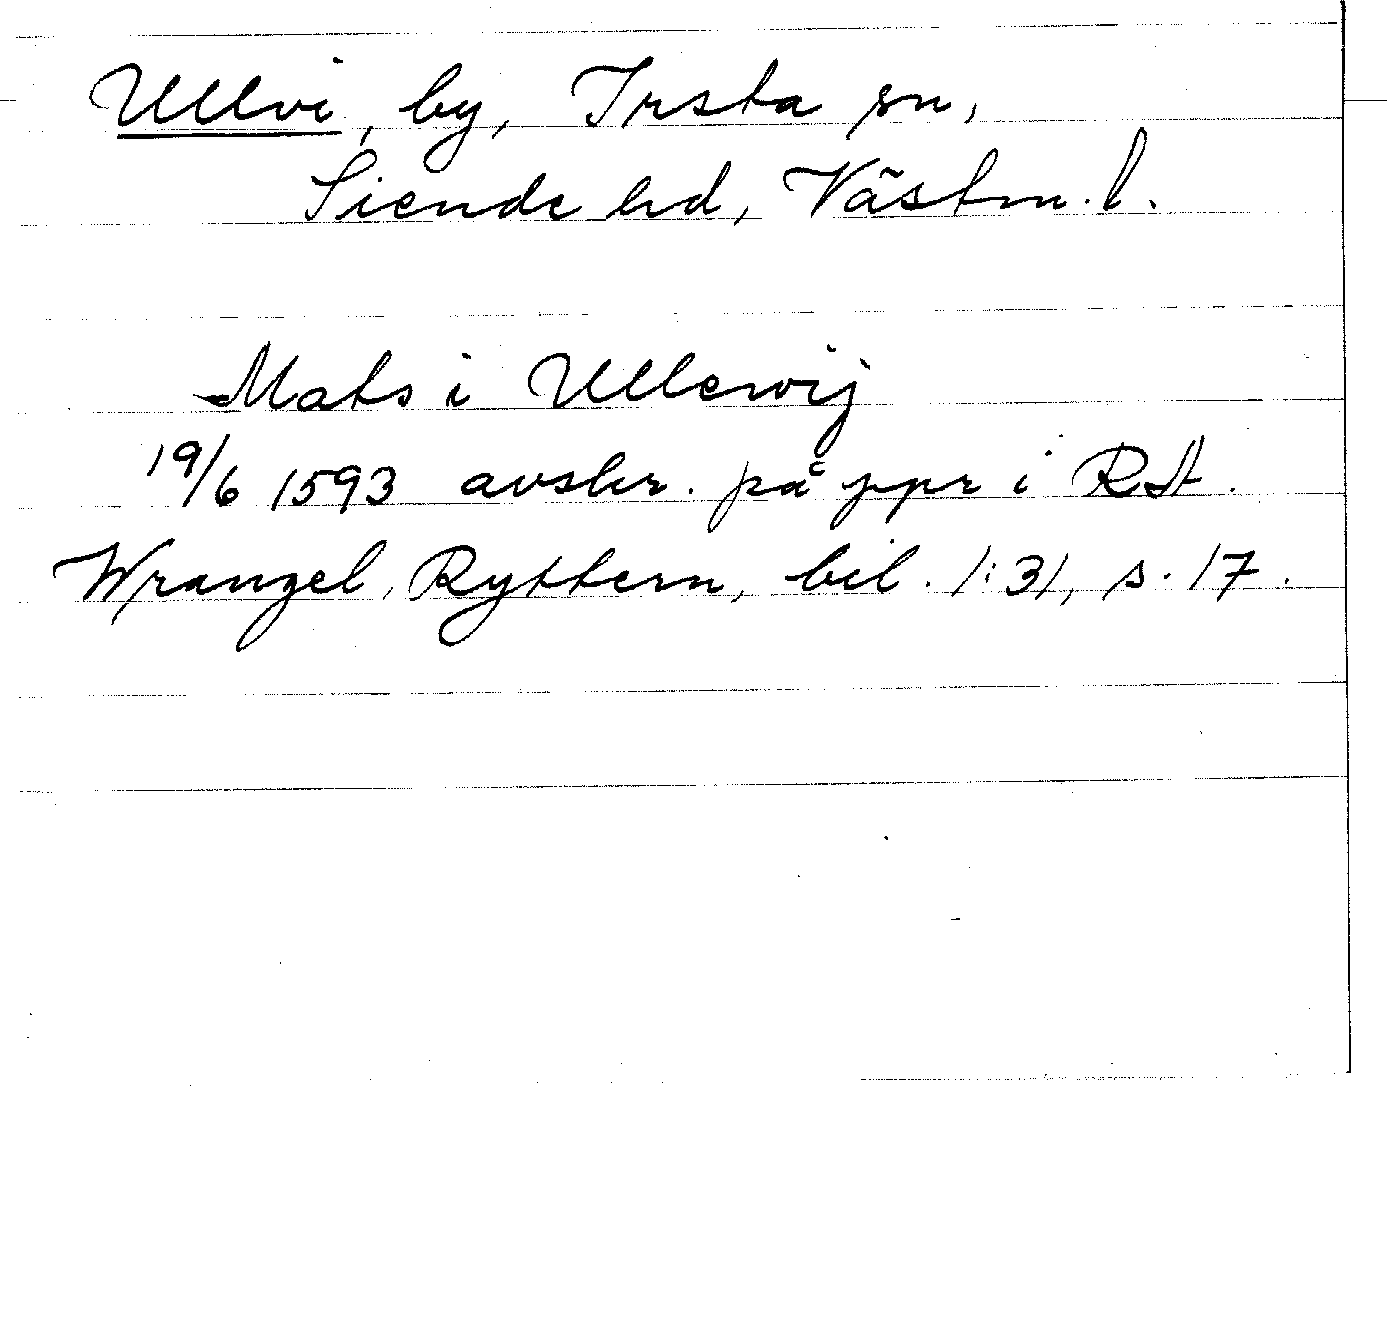 Ullvi, by, Irsta sn,
Siende hd, Västm. l.
Mats i Ullewij
19/6 1593 avskr. på ppr i RA.
Wrangel, Ryttern, bil. 1:31, s. 17.